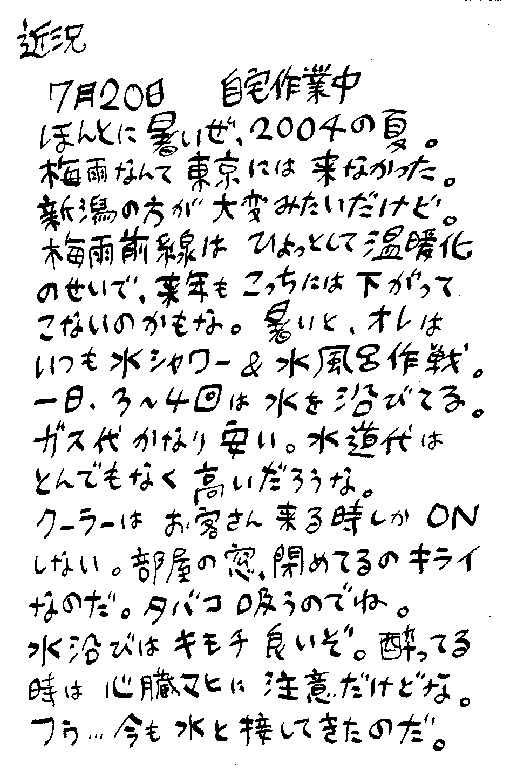 近況
7月20日 自宅作業中
ほんとに暑いぜ、2004の夏。
梅雨なんて東京には来なかった。
新潟の方が大変みたいだけど。
梅雨前線は ひょっとして温暖化
のせいで、来年もこっちには下がって
こないのかもな。暑いと、オレは
いつも水シャワー&水風呂作戦。
一日、3〜4回は水を沿びてる。
ガス代かなり安い。水道代は
とんでもなく高いだろうな。
クーラーは お客さん来る時しかON
しない。部屋の窓、閉めてるのキライ
なのだ。タバコ吸うのでね。
水沿びはキモチ良いぞ。酔ってる
時は心臓マヒに注意だけどな。
フゥ…今も水と接してきたのだ。